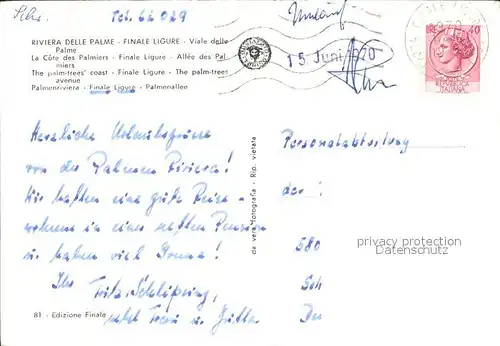 Tel. 62 029
Umlauf
RIVIERA DELLE PALME - FINALE LIGURE - Viale delle
Palme
La Côte des Palmiers - Finale Ligure - Allée des Pal
miers
The palm-trees' coast - Finale Ligure - The palm-trees
avenue
Palmenriviera - Finale Ligure - Palmenallee
15. Juni 1970
Herzliche Urlaubsgrüsse
von der Palmen Riviera!
Wir hatten eine gute Reise -
wohnen in einer netten Pension
u. haben viel Sonne!
Ihr Fritz Schlipsing,
nebst Frau u. Gitta.
81 - Edizione Finale
da vera fotografia - Rip. vietata
Personalabteilung
der :
580
Sch
privacy protection
Datenschutz